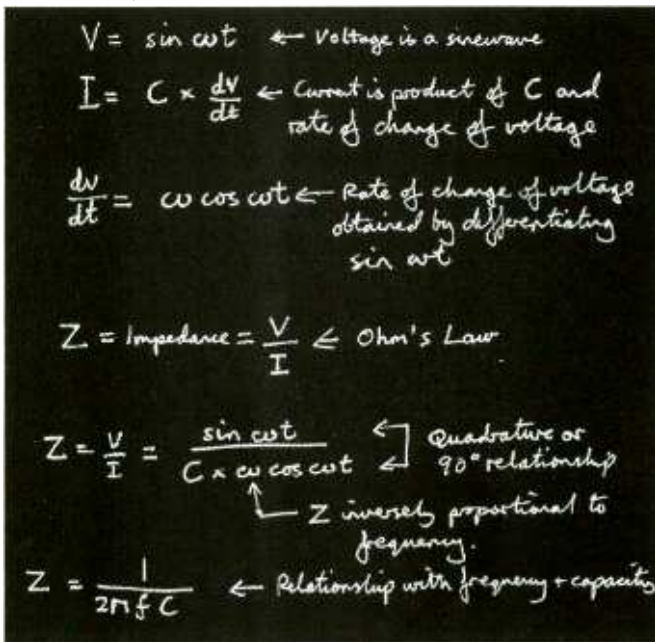 V = sin ωt ← Voltage is a sinewave
I = C × dv/dt ← Current is product of C and
rate of change of voltage
dv/dt = ω cos ωt ← Rate of change of voltage
obtained by differentiating
sin ωt
Z = Impedance = V/I ← Ohm's Law
Z = V/I = sin ωt / C × ω cos ωt ← Quadrature or
90° relationship
Z inversely proportional to
frequency.
Z = 1/2πfC ← Relationship with frequency + capacity